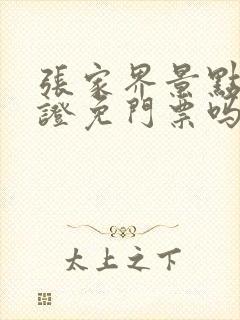 張家界景點
證免門票嗎
太上之下